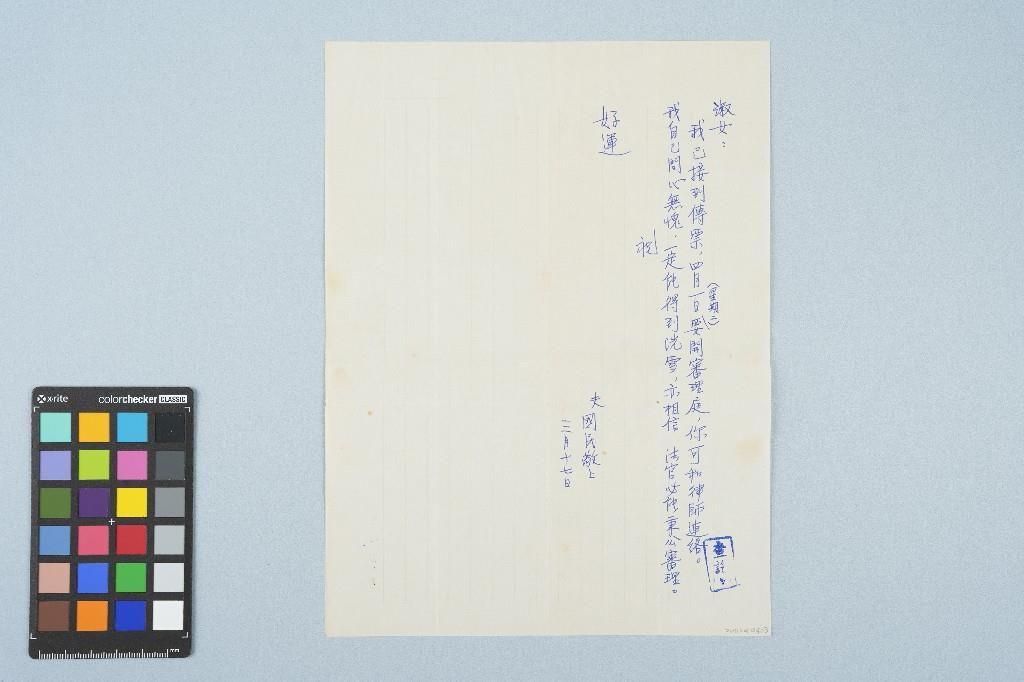 淑女：
我已接到傳票，四月一日(星期二)要開審理庭，你可和律師連絡。
我自己問心無愧，一定能得到洗雪，亦相信 法官必能秉公審理。
祝
好運
夫
國民敬上
三月十七日
查訖
x·rite
colorchecker CLASSIC
mm